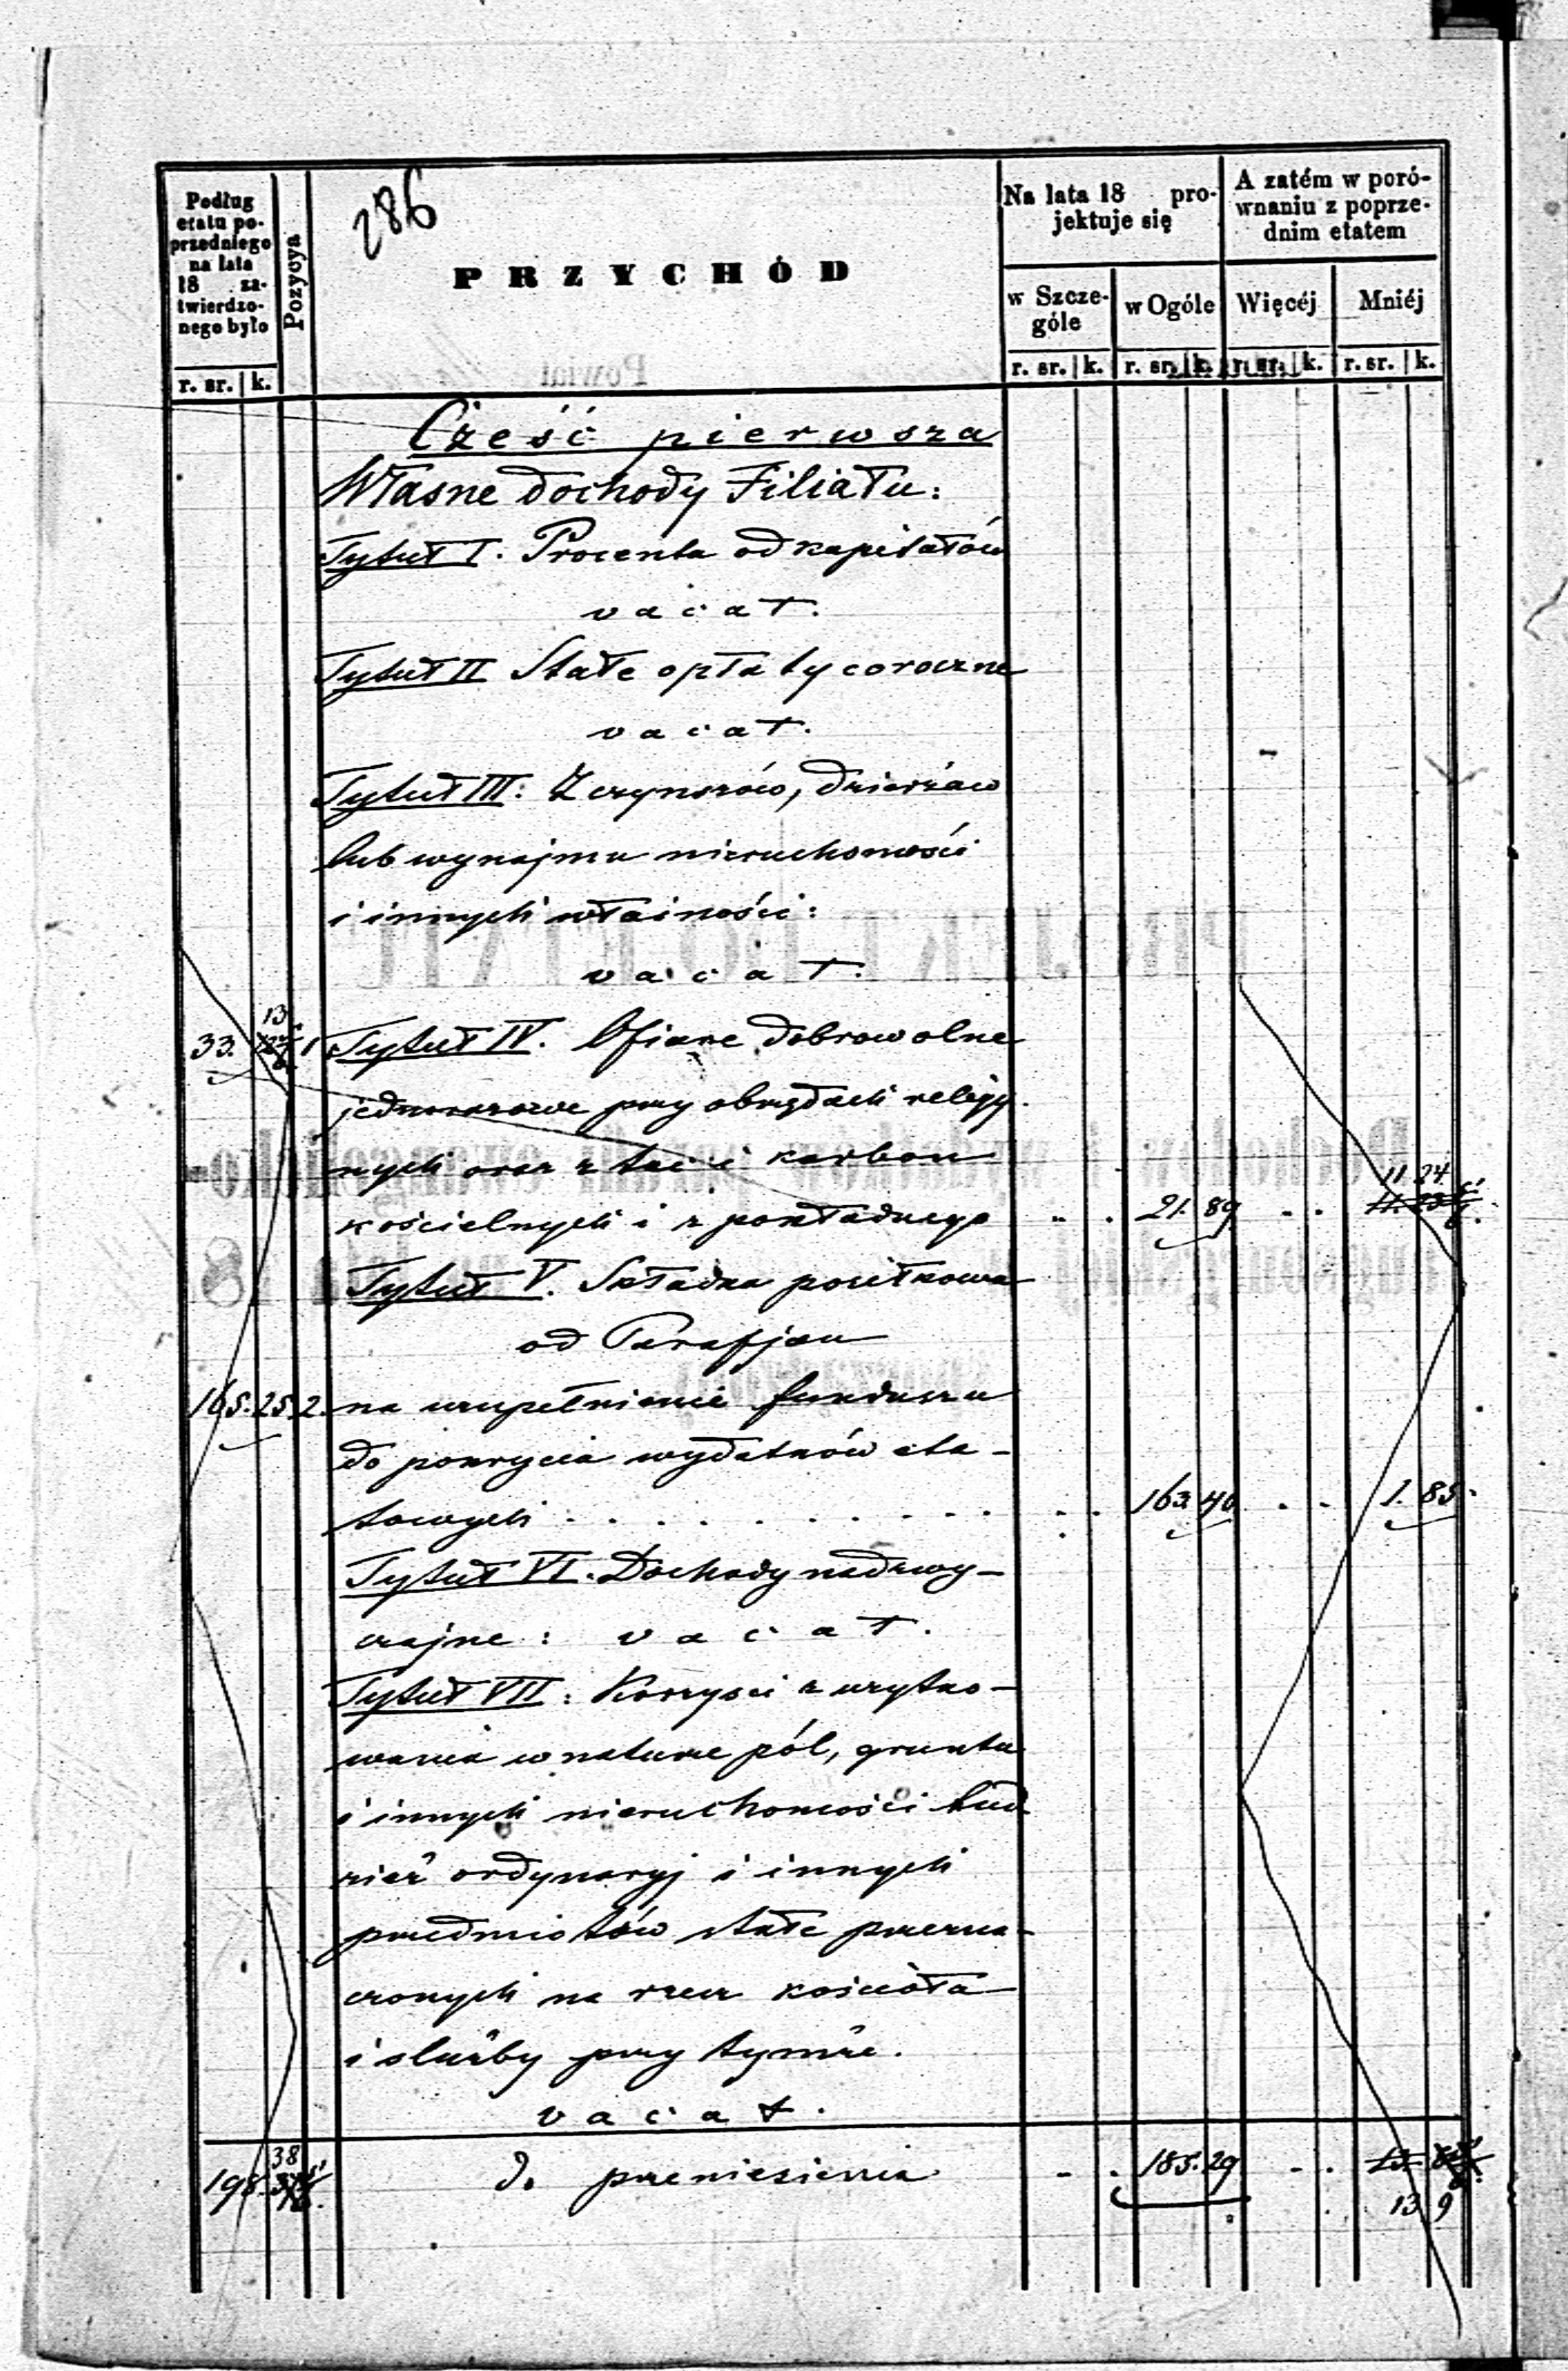 286
Podług
etatu po-
przedniego
na lata
18 za-
twierdzo-
nego było
Pozycya
PRZYCHÓD
Na lata 18 pro-
jektuje się
A zatém w poró-
wnaniu z poprze-
dnim etatem
w Szcze-
góle
w Ogóle
Więcéj
Mniéj
r. sr. k.
r. sr. k. r. sr. k. r. sr. k. r. sr. k.
Powiat
Cześć pierwsza
Własne dochody Filiału:
Tytuł I. Procenta od kapitałów
vacat.
Tytuł II Stałe opłaty coroczne
vacat.
Tytuł III: Z czynszów, dzierżaw
lub wynajmu nieruchomości
i innych własności:
vacat.
13
33. 1 Tytuł IV. Ofiare dobrowolne
jednorazowe przy obrzędach religij-
nych oraz z tac i karbon
11 24
kościelnych i z pokładnego 21. 89
Tytuł V. Składka posiłkowa
od Parafjan
165. 25. 2. na uzupełnienie funduszu
do pokrycia wydatków eta-
towych 163. 40 1. 85.
Tytuł VI. Dochody nadzwy-
czajne: vacat.
Tytuł VII: Korzyści z użytko-
wania w naturze pól, gruntu
i innych nieruchomości tud
zież ordynaryj i innych
przedmiotów stałe przezna-
czonych na rzecz kościoła
i służby przy tymże.
vacat.
38
198. do przeniesienia 185. 29
13 9